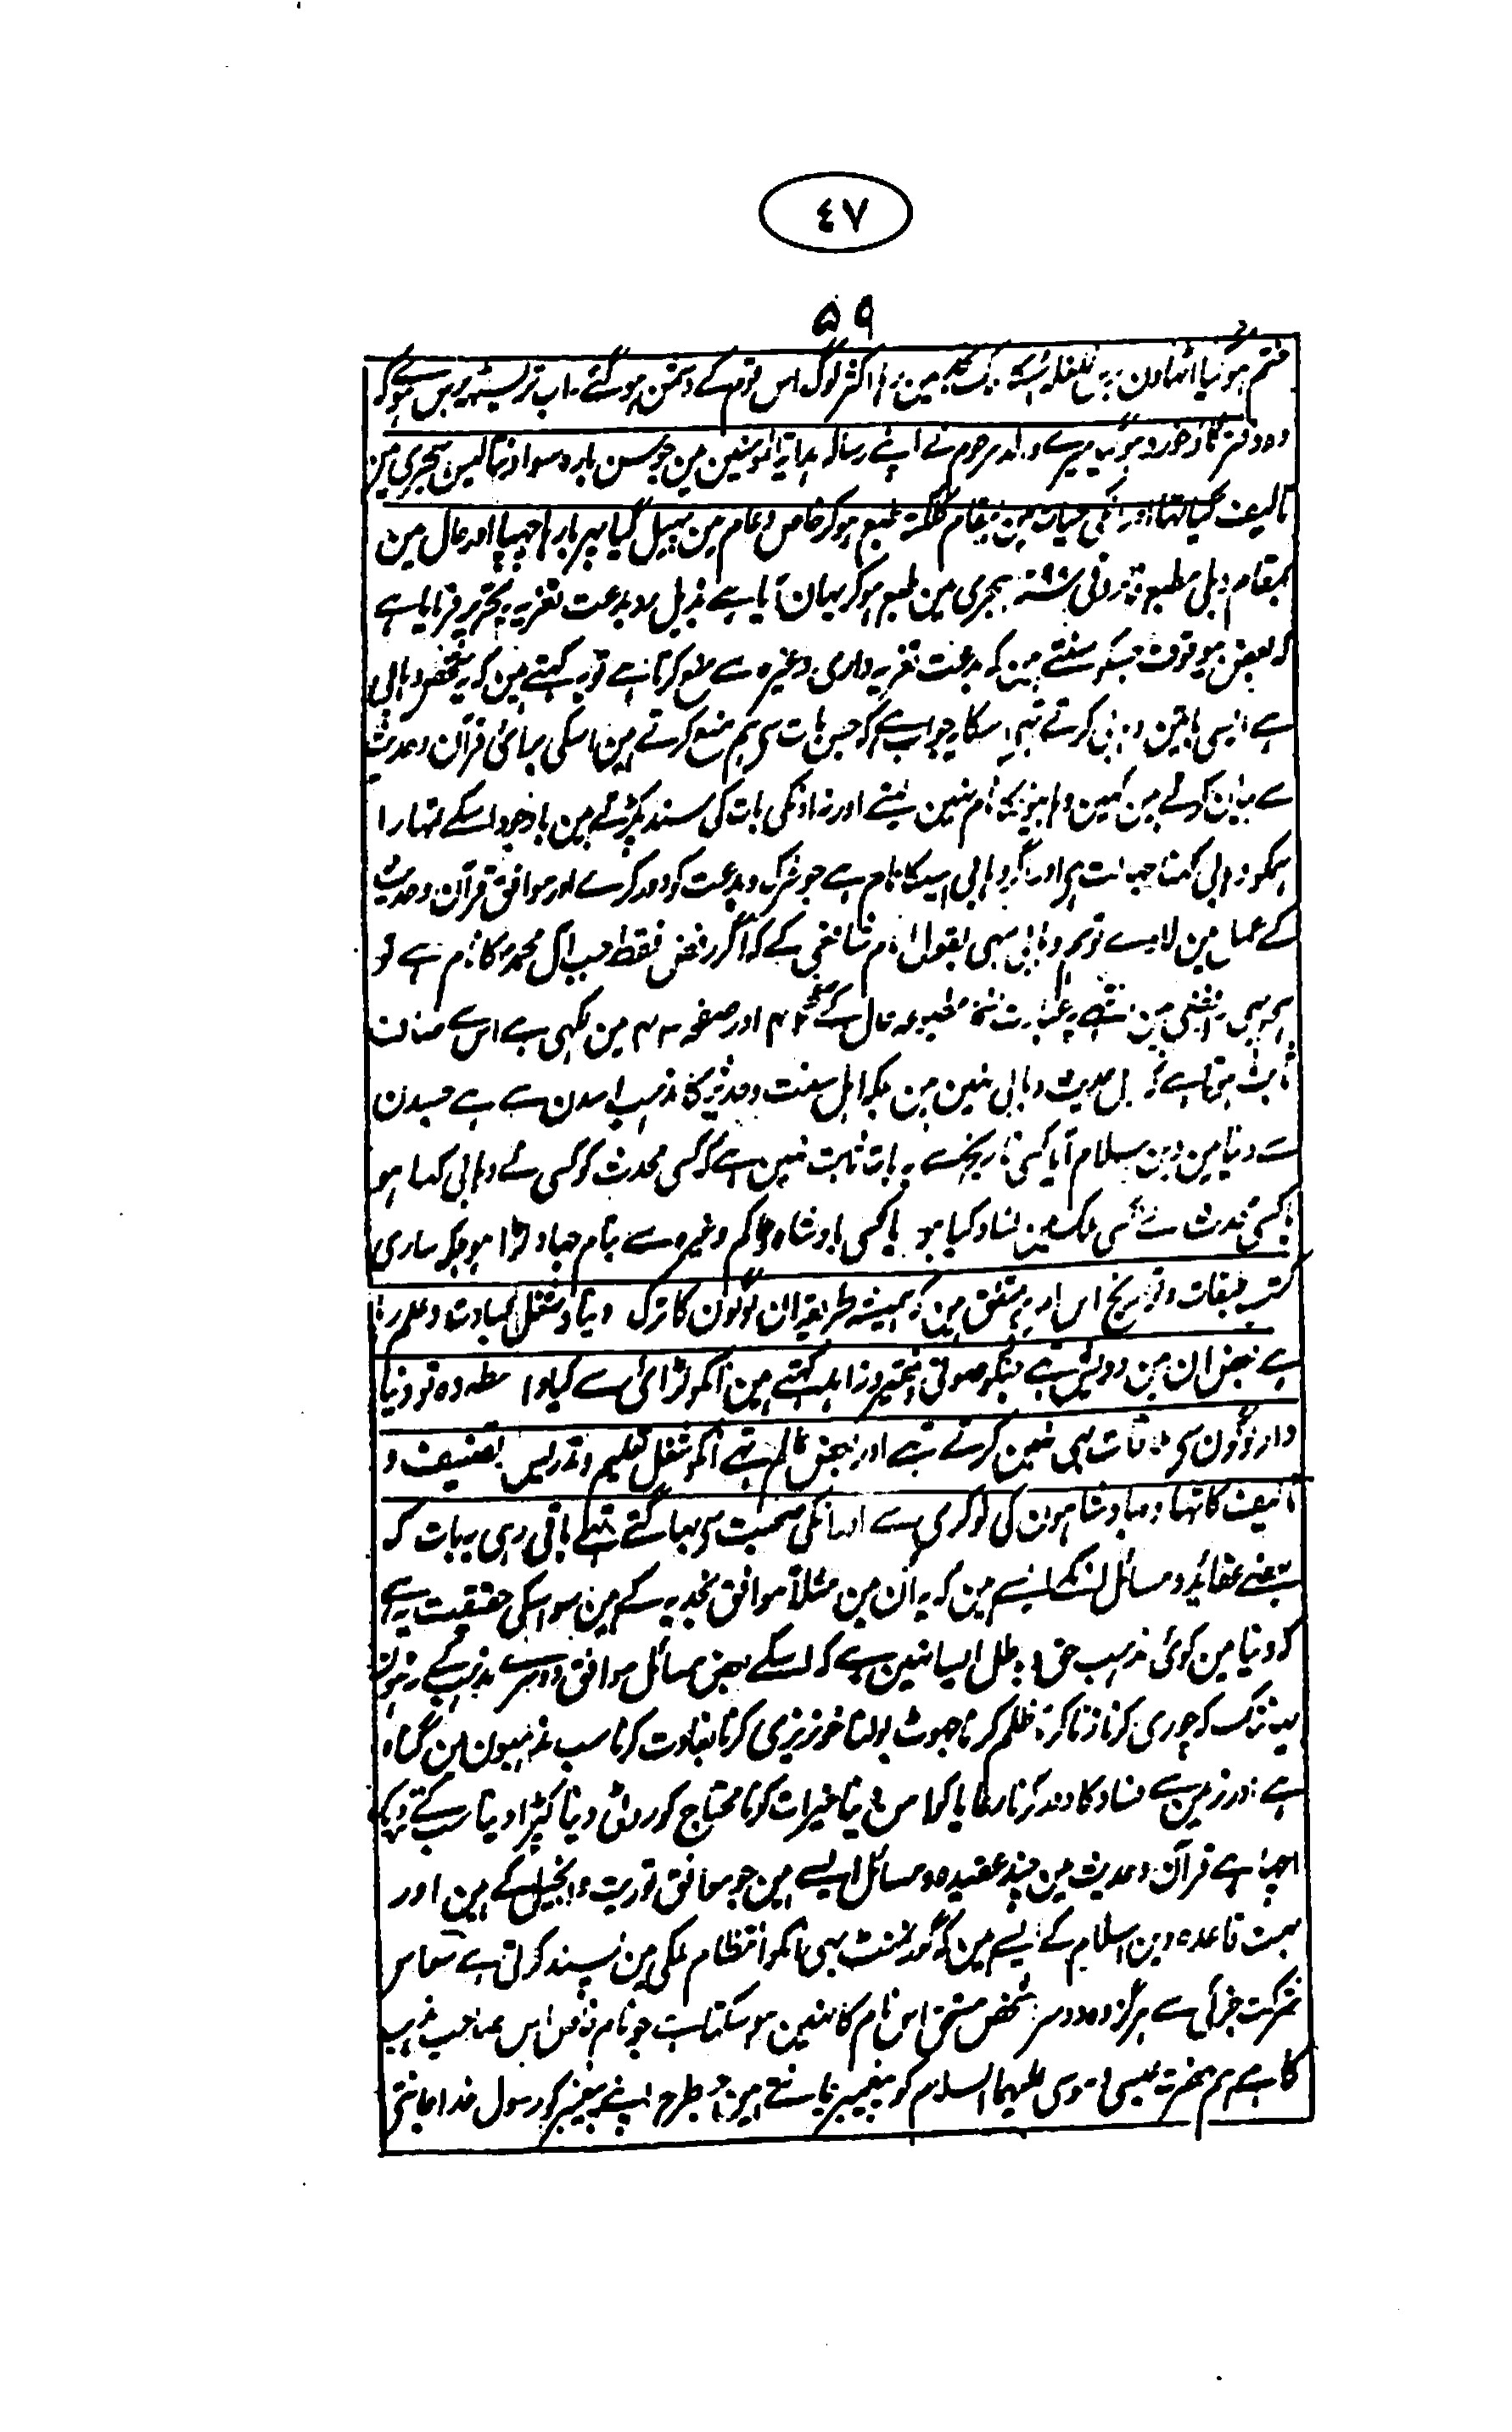 ٤٧
۵۹
ختم ہو گیا اکثر لوگ اس قوم کے دشمن ہو گئے اب
میرے والد مرحوم نے اپنے رسالہ ہدایۃ المومنین مین جو سن بارہ سو اونتالیس ہجری مین
تالیف کیا تھا اور انکی حیات مین بمقام کلکتہ طبع ہو کر خاص و عام مین پہیل گیا پہر بارہا چھپا اور حال مین
بمقام دہلی مطبع فاروقی ہجری مین طبع ہو کر یہان آیا ہے بذیل رد بدعت تعزیہ تحریر فرمایا ہے
کہ بعض بیوقوف جسکو سنتے ہین کہ بدعت تعزیہ داری وغیرہ سے منع کرتا ہے تو یہ کہتے ہین کہ یہ شخص وہابی
ہے ایسی باتین وہابی کرتے تہے اسکا جواب یہ ہے کہ جس بات سی ہم منع کرتے ہین اسکی برائی قرآن و حدیث
سے بیان کرتے ہین کہین وہابیونکا نام نہین لیتے اور نہ اونکی بات کی سند پکڑتے ہین باوجود اسکے تمہارا
ہمکو وہابی کہنا جہالت ہی اور اگر وہابی اسیکا نام ہے جو شرک و بدعت کو دور کرے اور موافق قرآن و حدیث
کے عمل مین لاوے تو ہم وہابی سہی بقول امام شافعی کے کہ اگر رفض فقط حب آل محمد کا نام ہے تو
ہم بہی رافضی ہین یہ عبارت نسخہ مطبوعہ حال کے صفحہ اور صفحہ مین لکہی ہے اس سے صاف
ثابت ہوتا ہے کہ اہل حدیث وہابی نہین ہین بلکہ اہل سنت و حدیث کا مذہب اسدن سے ہے جسدن
سے دنیا مین دین اسلام آیا کسی تاریخ سے یہ بات ثابت نہین ہے کہ کسی محدث کو کسی نے وہابی کہا ہو
یا کسی محدث نے کسی ملک مین فساد کیا ہو یا کسی بادشاہ حاکم وغیرہ سے بنام جہاد لڑا ہو بلکہ ساری
کتب طبقات و تواریخ اس امر پر متفق ہین کہ ہمیشہ طریقہ ان لوگون کا ترک دنیا و شغل عبادت و علم رہا
ہے بعض ان مین درویش تہے جنکو صوفی و فقیر و زاہد کہتے ہین انکو لڑائی سے کیا واسطہ وہ تو دنیا
دار لوگون سی ملاقات بہی نہین کرتے تہے اور بعض عالم تہے انکو شغل تعلیم و تدریس تصنیف و
تالیف کا تہا وہ بادشاہون کی نوکری سے اور انکی صحبت سی بہاگتے تہے باقی رہی یہ بات کہ
بعضے عقائد و مسائل انکے ایسے ہین کہ یہ ان مین مثلاً موافق نجدیہ کے ہین سو اسکی حقیقت یہ ہے
کہ دنیا مین کوئی مذہب حق و باطل ایسا نہین ہے کہ اسکے بعض مسائل موافق دوسرے مذہب کے نہون
یہانتک کہ چوری کرنا زنا کرنا ظلم کرنا جہوٹ بولنا خونریزی کرنا بغاوت کرنا سب مذہبون مین گناہ
ہے اور زمین سے فساد کا دور کرنا رعایا کو امن دینا خیرات کرنا محتاج کو روٹی دینا کپڑا دینا سب کے نزدیک
اچہا ہے قرآن و حدیث مین چند عقیدہ و مسائل ایسے ہین جو موافق توریت و انجیل کے ہین اور
بہت قاعدہ دین اسلام کے ایسے ہین کہ گورنمنٹ بہی انکو انتظام ملکی مین پسند کرتی ہے سو اس
شرکت جزئی سے ہرگز وہ دوسرا شخص مستحق اس نام کا نہین ہو سکتا ہے جو نام خاص اس صاحب مذہب
کا ہے ہم حضرت عیسی و موسی علیہما السلام کو پیغمبر مانتے ہین جس طرح اپنے پیغمبر کو رسول خدا جانتے